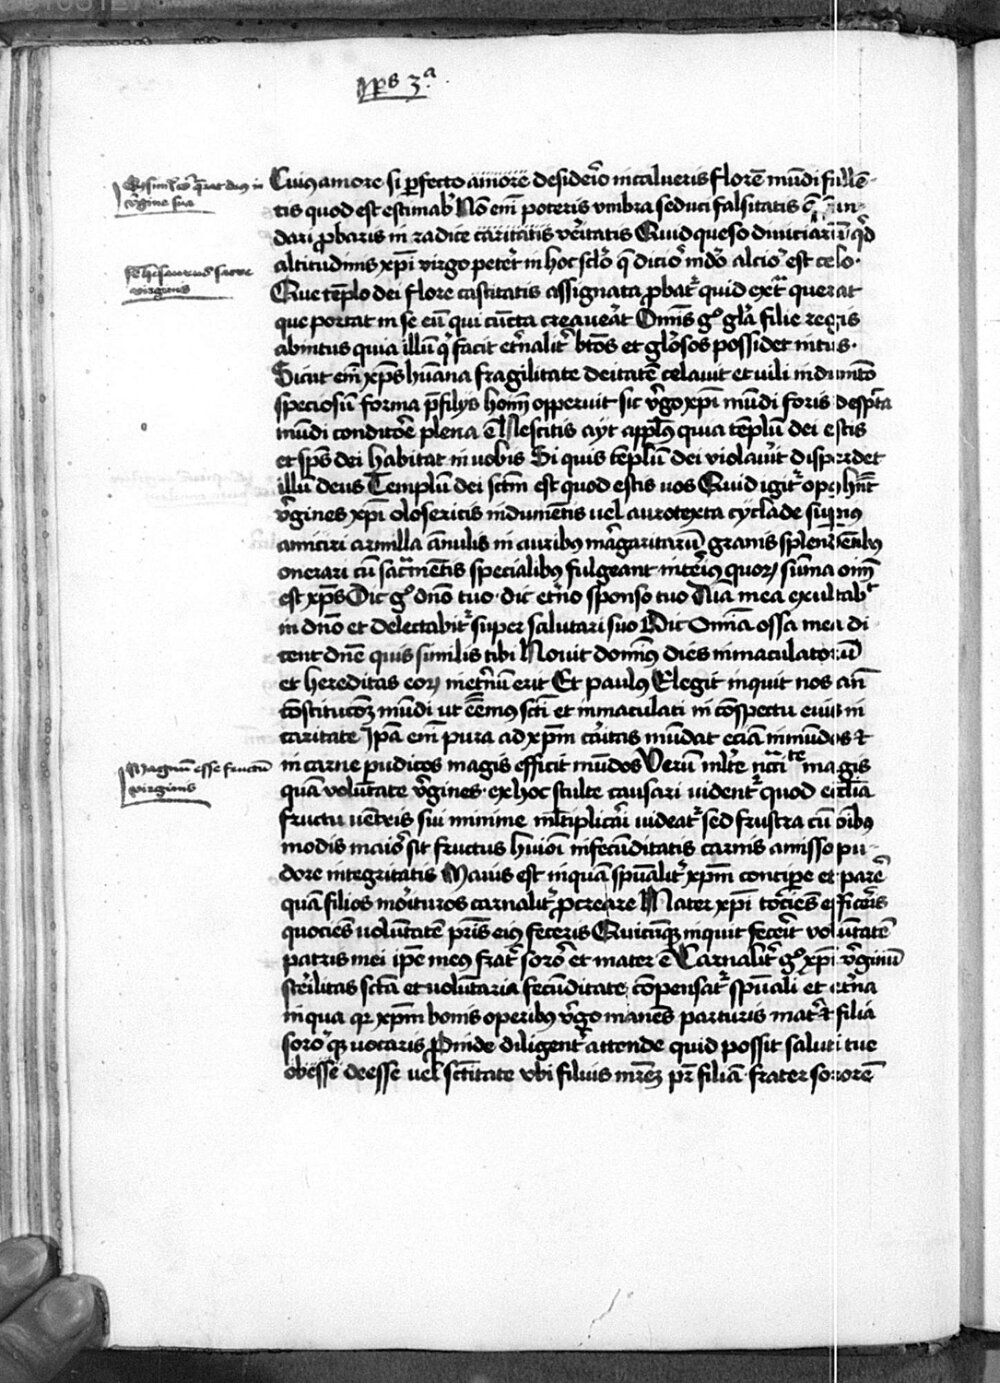 Ps 3.a
Cuius amore si p̲fecto amore desid̓io incalueris florē mūdi fallē-
tis quod est estimab̓ Nō em̄ poteris vmbra seduci falsitatis
dari p̲baris in radice caritatis v̓itatis Quid queso diuiciarū
altitudinis xp̄i virgo peter̓ in hoc sc̄lo q̓ dicio̓ mdo̓ alcio̓ est celo.
Que tēplo dei flore castitatis assignata p̲batr̓ quid extra̓ querat
que portat in se eū qui cūcta creauerat Om̄is g° gla̓ filie regis
abintus quia illum q̓ facit et̓nalit̓ btōs et glo̓sos possidet intus.
Sicut em̄ xp̄s hūana fragilitate deitatē celauit et uili indumēto
speciosū forma p̄ filijs hom̄ opperuit sic v̓go xp̄i mūdi foris despc̄ta
mūdi conditorē plena ē Nescitis ayt appl̓us quia tēplū dei estis
et sp̄s dei habitat in uobis Si quis tēplū dei violauit disperdet
illū deus Templū dei sc̄tm est quod estis uos Quid igit̓ ope hn̄t
v̓gines xp̄i olosericis indumētis uel aurotexta cyclade supimus
amiciri armilla ānulis in auribus ma̓rgaritarū granis splendētibus
onerari cū sac̄mētis specialibus fulgeant int̓ius quorꝫ sūma oīm
est xp̄s Dic g° dn̄o tuo. dic et̓no sponso tuo Aīa mea exultabt
in dn̄o et delectabit̓ super salutari suo Dic Omnīa ossa mea di
cent dn̄e quis similis tibi Nouit domin̓us dies inmaculatorū
et hereditas eorꝫ in et̓nū erit Et paulus Elegit inquit nos an̄
cōstitucōeꝫ mūdi ut eēmus sc̄ti et inmaculati in cōspectu eius in
caritate Ipa em̄ pura ad xp̄m ca̓itas mūdat eciam inmūdos et
in carne pudicos magis efficit mūdos Verū ml̓te magis
quā volūtate v̓gines. ex hoc stulte causari uidentr̓ quod ecclīa
fructu uētris sui minime ml̓tiplica̓ri uideatr̓ sed frustra cū oībus
modis maio̓ sit fructus huīoī infecūditatis carnis amisso pu-
dore integritatis Maius est inquā sp̄ualit̓ xp̄m concipe et parē
quā filios mo̓ituros carnalit̓ p̲creare Mater xp̄i tociēs efficieris
quociēs volūtatē pr̄is eius feceris Quicūqꝫ inquit fecerit volūtatē
patris mei ipe meus frat̓ soror̓ et mater ē Carnalit̓ g° xp̄i v̓ginū
ste̓ilitas sc̄ta et uolūtaria fecūditate cōpensatr̓ sp̄uali et et̓na
in qua qr̓ xp̄m bonis operibus v̓go manēs parturis mat̓ et filia
soro̓ qꝫ uocaris p̲inde diligent̓ attende quid possit saluti tue
obesse deesse uel sc̄titate vbi filius mr̄eꝫ pr̄ filiā. frater sororē
virgine sua
virginis
Magnum esse fructum
virginis